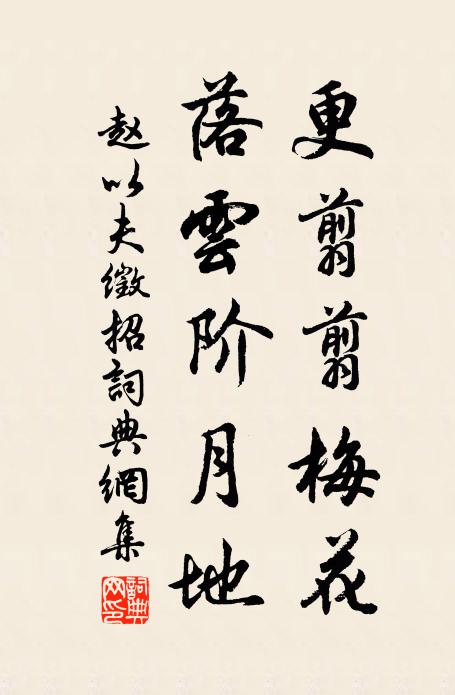 更翦翦梅花
落雲阶月地
赵以夫徵招詞典網集
詞典网印